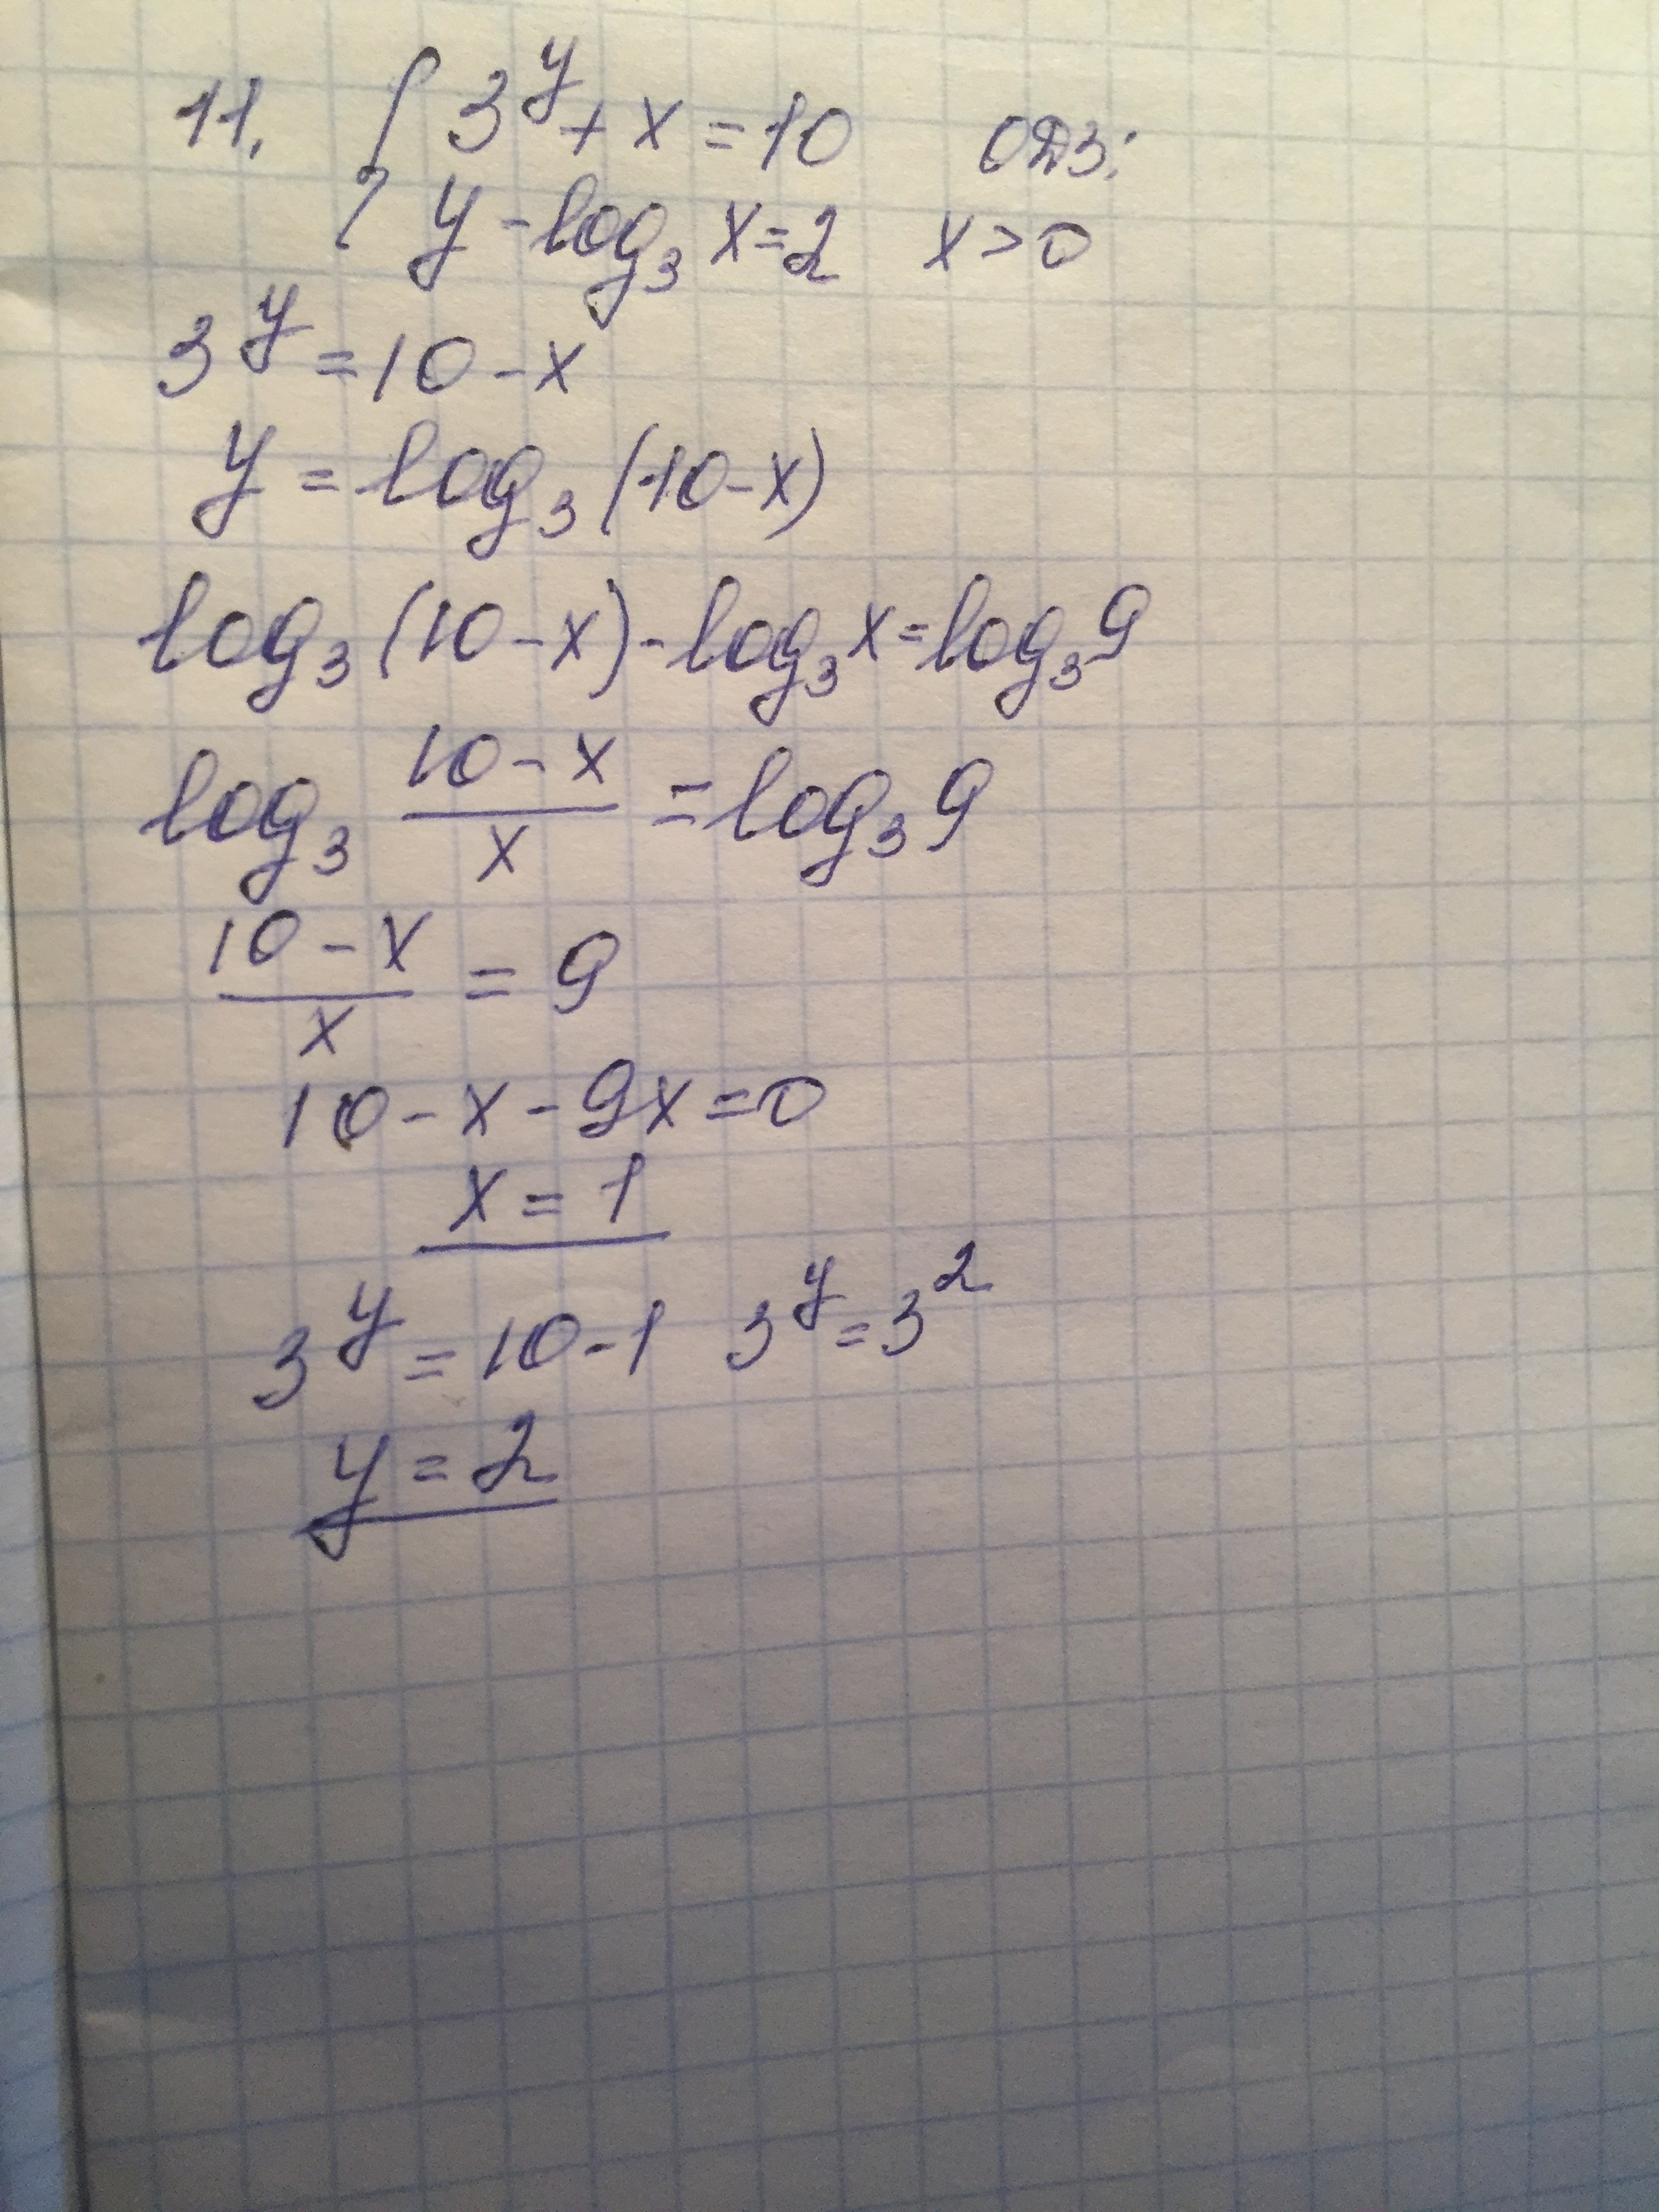 11. { 3^y + x = 10 ОДЗ:
y - log₃ x = 2 x > 0
3^y = 10 - x
y = log₃ (10 - x)
log₃ (10 - x) - log₃ x = log₃ 9
log₃ (10 - x)/x = log₃ 9
(10 - x)/x = 9
10 - x - 9x = 0
x = 1
3^y = 10 - 1 3^y = 3^2
y = 2